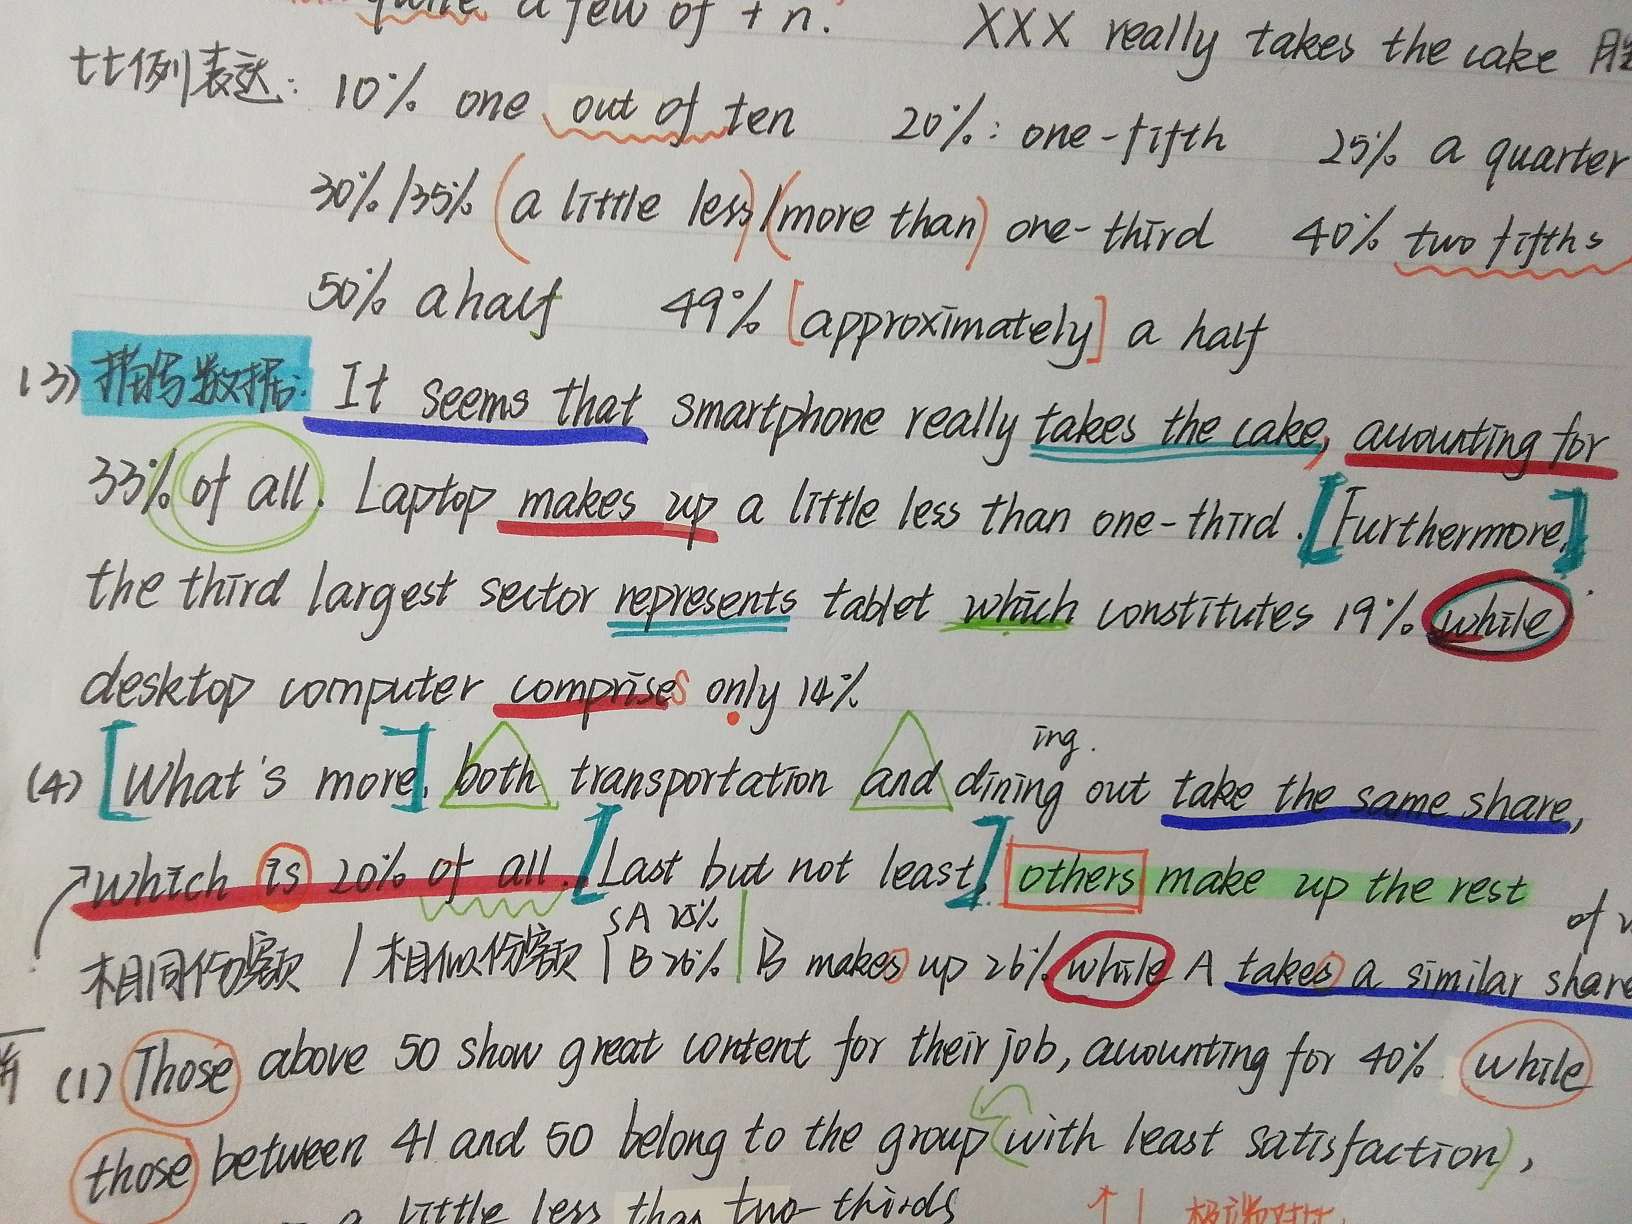 quite a few of + n.
XXX really takes the cake
比例表达: 10% one out of ten 20%: one-fifth 25% a quarter
30%/35% (a little less)/(more than) one-third 40% two fifths
50% a half 49% [approximately] a half
(3) 描写数据: It seems that smartphone really takes the cake, accounting for
33% of all. Laptop makes up a little less than one-third. [Furthermore,]
the third largest sector represents tablet which constitutes 19% while
desktop computer comprises only 14%
ing.
(4) [What's more], both transportation and dining out take the same share,
which is 20% of all. [Last but not least], others make up the rest
相同份额 / 相似份额 { A 25% B 26% | B makes up 26% while A takes a similar share
of
(1) Those above 50 show great content for their job, accounting for 40% while
those between 41 and 50 belong to the group (with least satisfaction),
a little less than two-thirds
极端对比